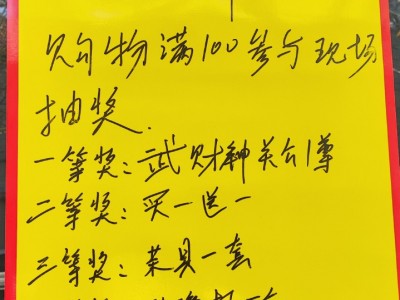 购物满100参与现场
抽奖.
一等奖:武财神关公1尊
二等奖:买一送一
三等奖:茶具一套